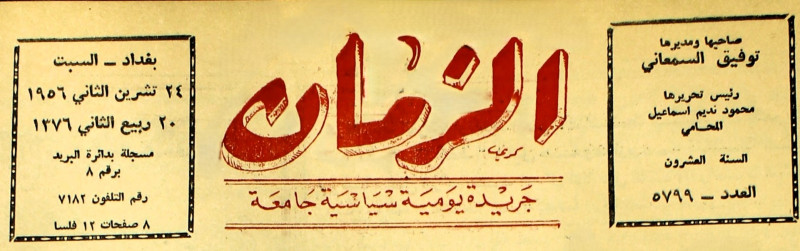 صاحبها ومديرها
توفيق السمعاني
رئيس تحريرها
محمود نديم اسماعيل
المحامي
السنة العشرون
العدد ــ ٥٧٩٩
الزمان
جريدة يومية سياسية جامعة
بغداد ــ السبت
٢٤ تشرين الثاني ١٩٥٦
٢٠ ربيع الثاني ١٣٧٦
مسجلة بدائرة البريد
برقم ٨
رقم التلفون ٧١٨٢
٨ صفحات ١٢ فلسا